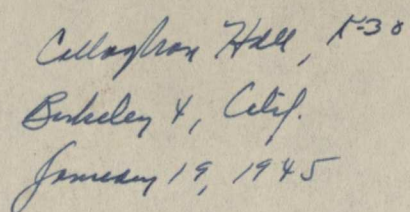 Callaghan Hall, K-30
Berkeley 4, Calif.
January 19, 1945